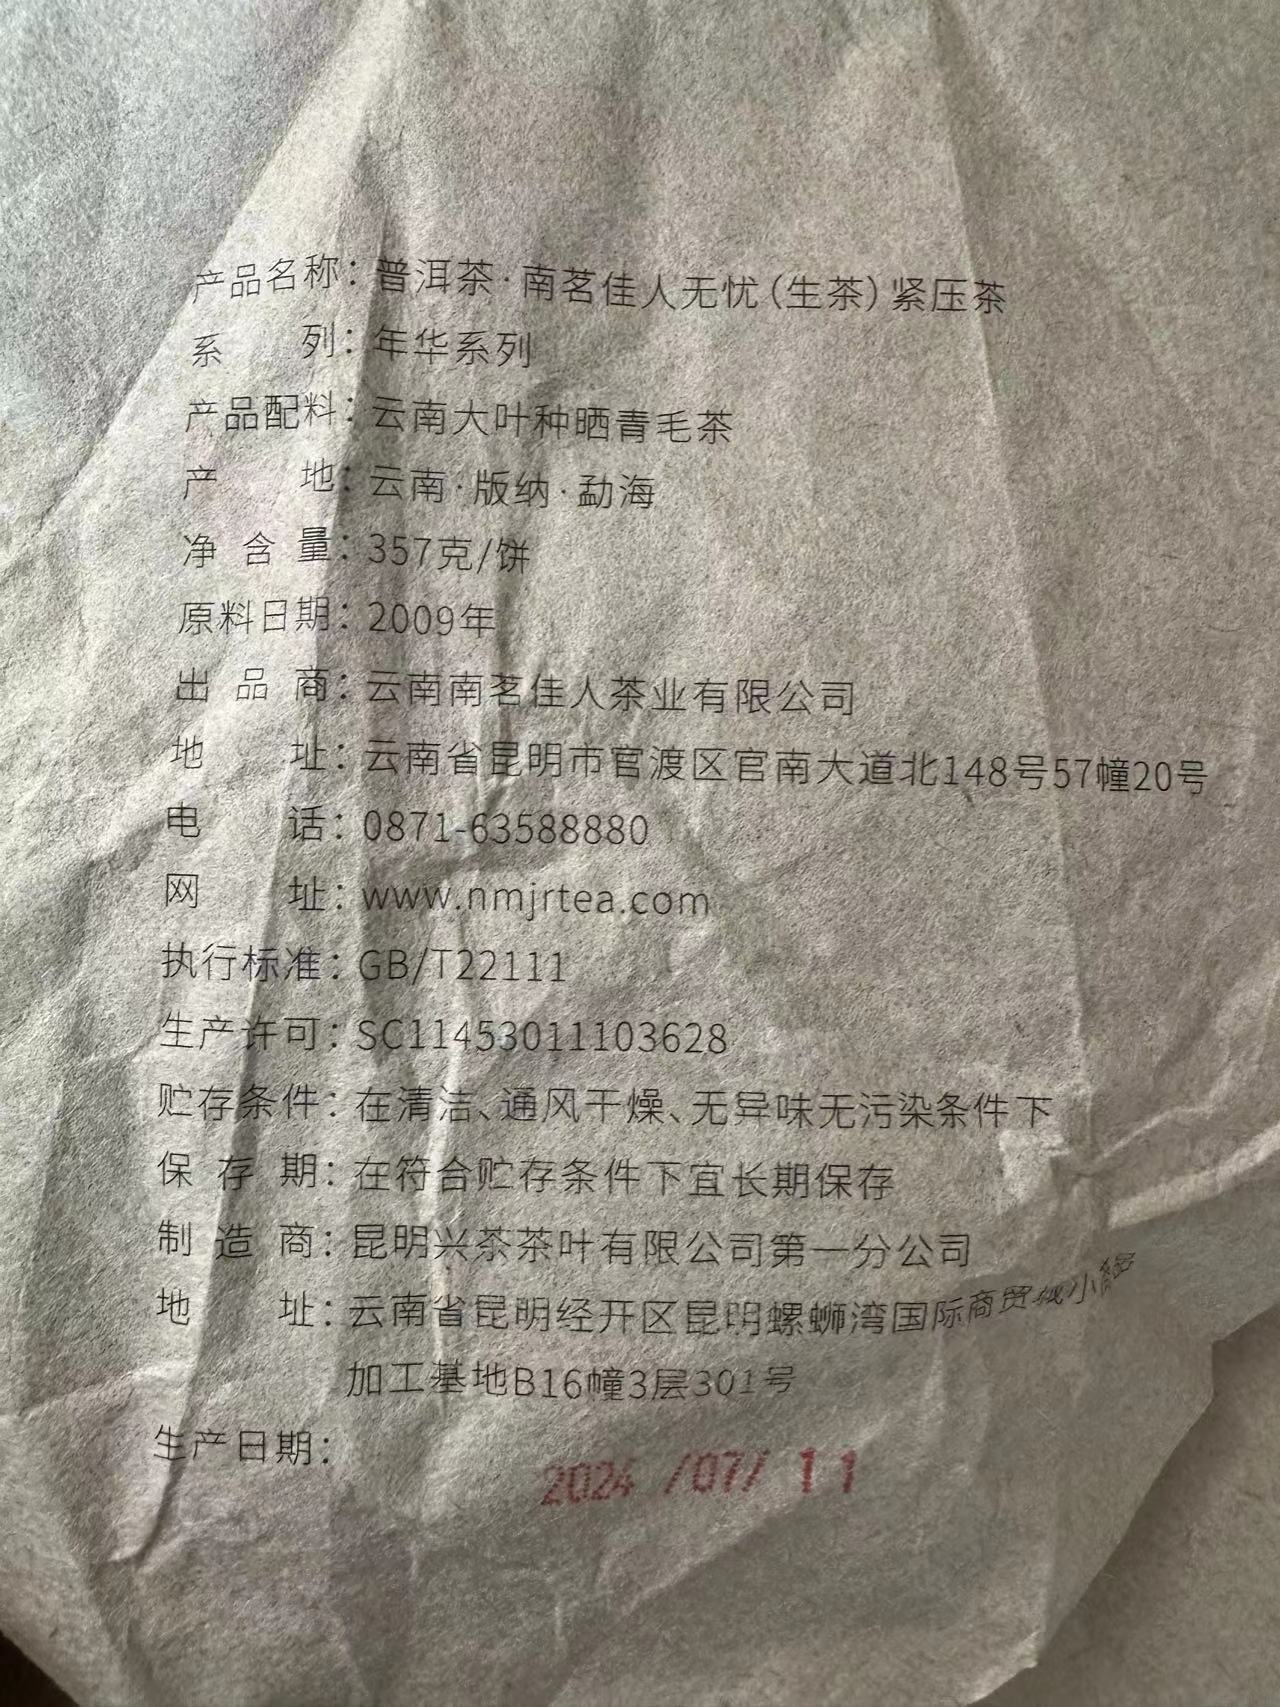 产品名称：普洱茶·南茗佳人无忧（生茶）紧压茶
系列：年华系列
产品配料：云南大叶种晒青毛茶
产地：云南·版纳·勐海
净含量：357克/饼
原料日期：2009年
出品商：云南南茗佳人茶业有限公司
地址：云南省昆明市官渡区官南大道北148号57幢20号
电话：0871-63588880
网址：www.nmjrtea.com
执行标准：GB/T22111
生产许可：SC11453011103628
贮存条件：在清洁、通风干燥、无异味无污染条件下
保存期：在符合贮存条件下宜长期保存
制造商：昆明兴茶茶叶有限公司第一分公司
地址：云南省昆明经开区昆明螺蛳湾国际商贸城小
加工基地B16幢3层301号
生产日期：
2024/07/11